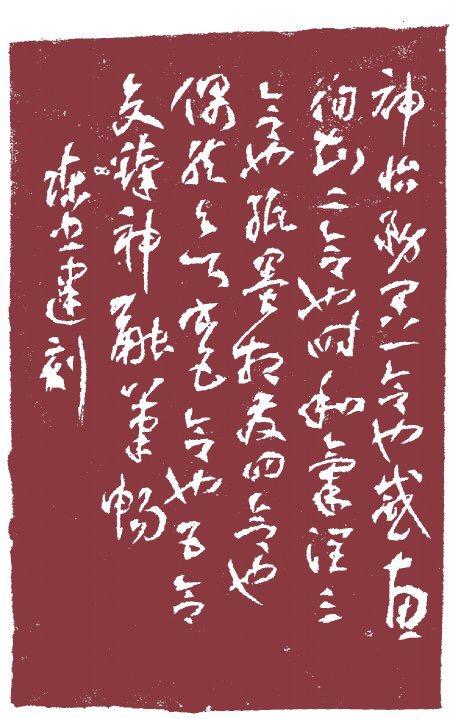 神怡務閑一合也感惠
徇知二合也時和氣潤三
合也紙墨相發四合也
偶然欲書五合也五合
交臻神融筆暢
陳忠建刻